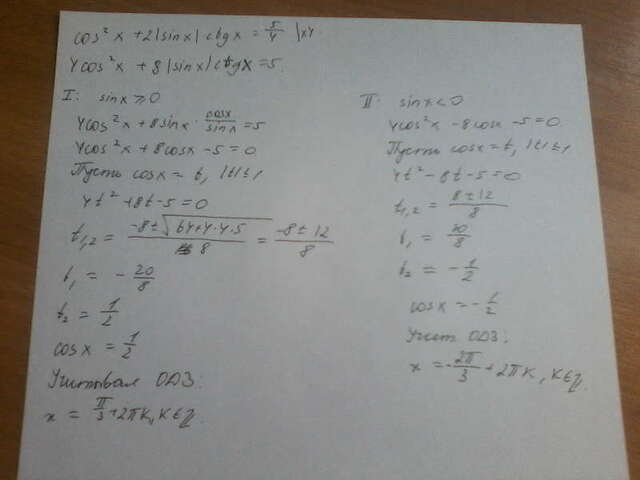 cos²x + 2|sinx| ctgx = 5/4 |×4
4cos²x + 8|sinx| ctgx = 5.
I: sinx ≥ 0
4cos²x + 8sinx · cosx/sinx = 5
4cos²x + 8cosx - 5 = 0
Пусть cosx = t, |t| ≤ 1
4t² + 8t - 5 = 0
t₁,₂ = (-8 ± √(64+4·4·5))/8 = (-8 ± 12)/8
t₁ = -20/8
t₂ = 1/2
cosx = 1/2
Учитывая ОДЗ:
x = π/3 + 2πk, k∈Z.
II: sinx < 0
4cos²x - 8cosx - 5 = 0
Пусть cosx = t, |t| ≤ 1
4t² - 8t - 5 = 0
t₁,₂ = (8 ± 12)/8
t₁ = 20/8
t₂ = -1/2
cosx = -1/2
Учит ОДЗ:
x = -2π/3 + 2πk, k∈Z.